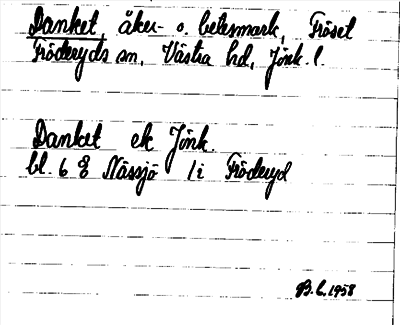 Danket, åker- o. betesmark, Fröset
Fröderyds sn, Västra hd, Jönk. l.
Danket ek Jönk.
bl. 6 g Nässjö 1 i Fröderyd
B.L. 1958